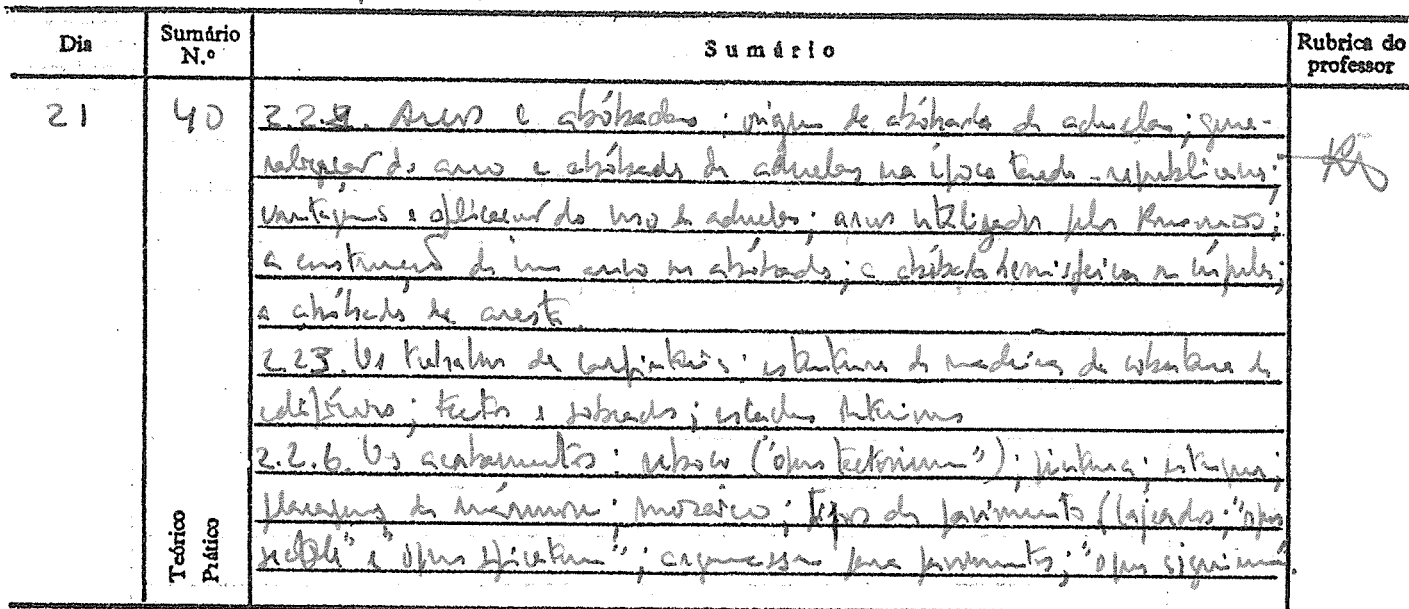 Dia Sumário N.º Sumário Rubrica do professor
21 40 2.2. Arcos e abóbadas; origem da abóbada de aduelas; gene-
ralização do arco e abóbada de aduelas na época tardo-republicana;
vantagens e aplicações do uso de aduelas; arcos utilizados pelos Romanos;
a construção de um arco ou abóbada; a abóbada hemisférica ou cúpula;
a abóbada de aresta.
Os trabalhos de carpintaria: estrutura de madeira da cobertura de
edifícios; tectos e sobrados; escadas interiores
2.2.6. Os acabamentos: reboco ("opus tectorium"); pintura; estuque;
placagem de mármore; mosaico; tipos de pavimento (lajeado; "opus
sectile" e "opus spicatum"; argamassa para pavimentos; "opus signinum".
Teórico
Prático